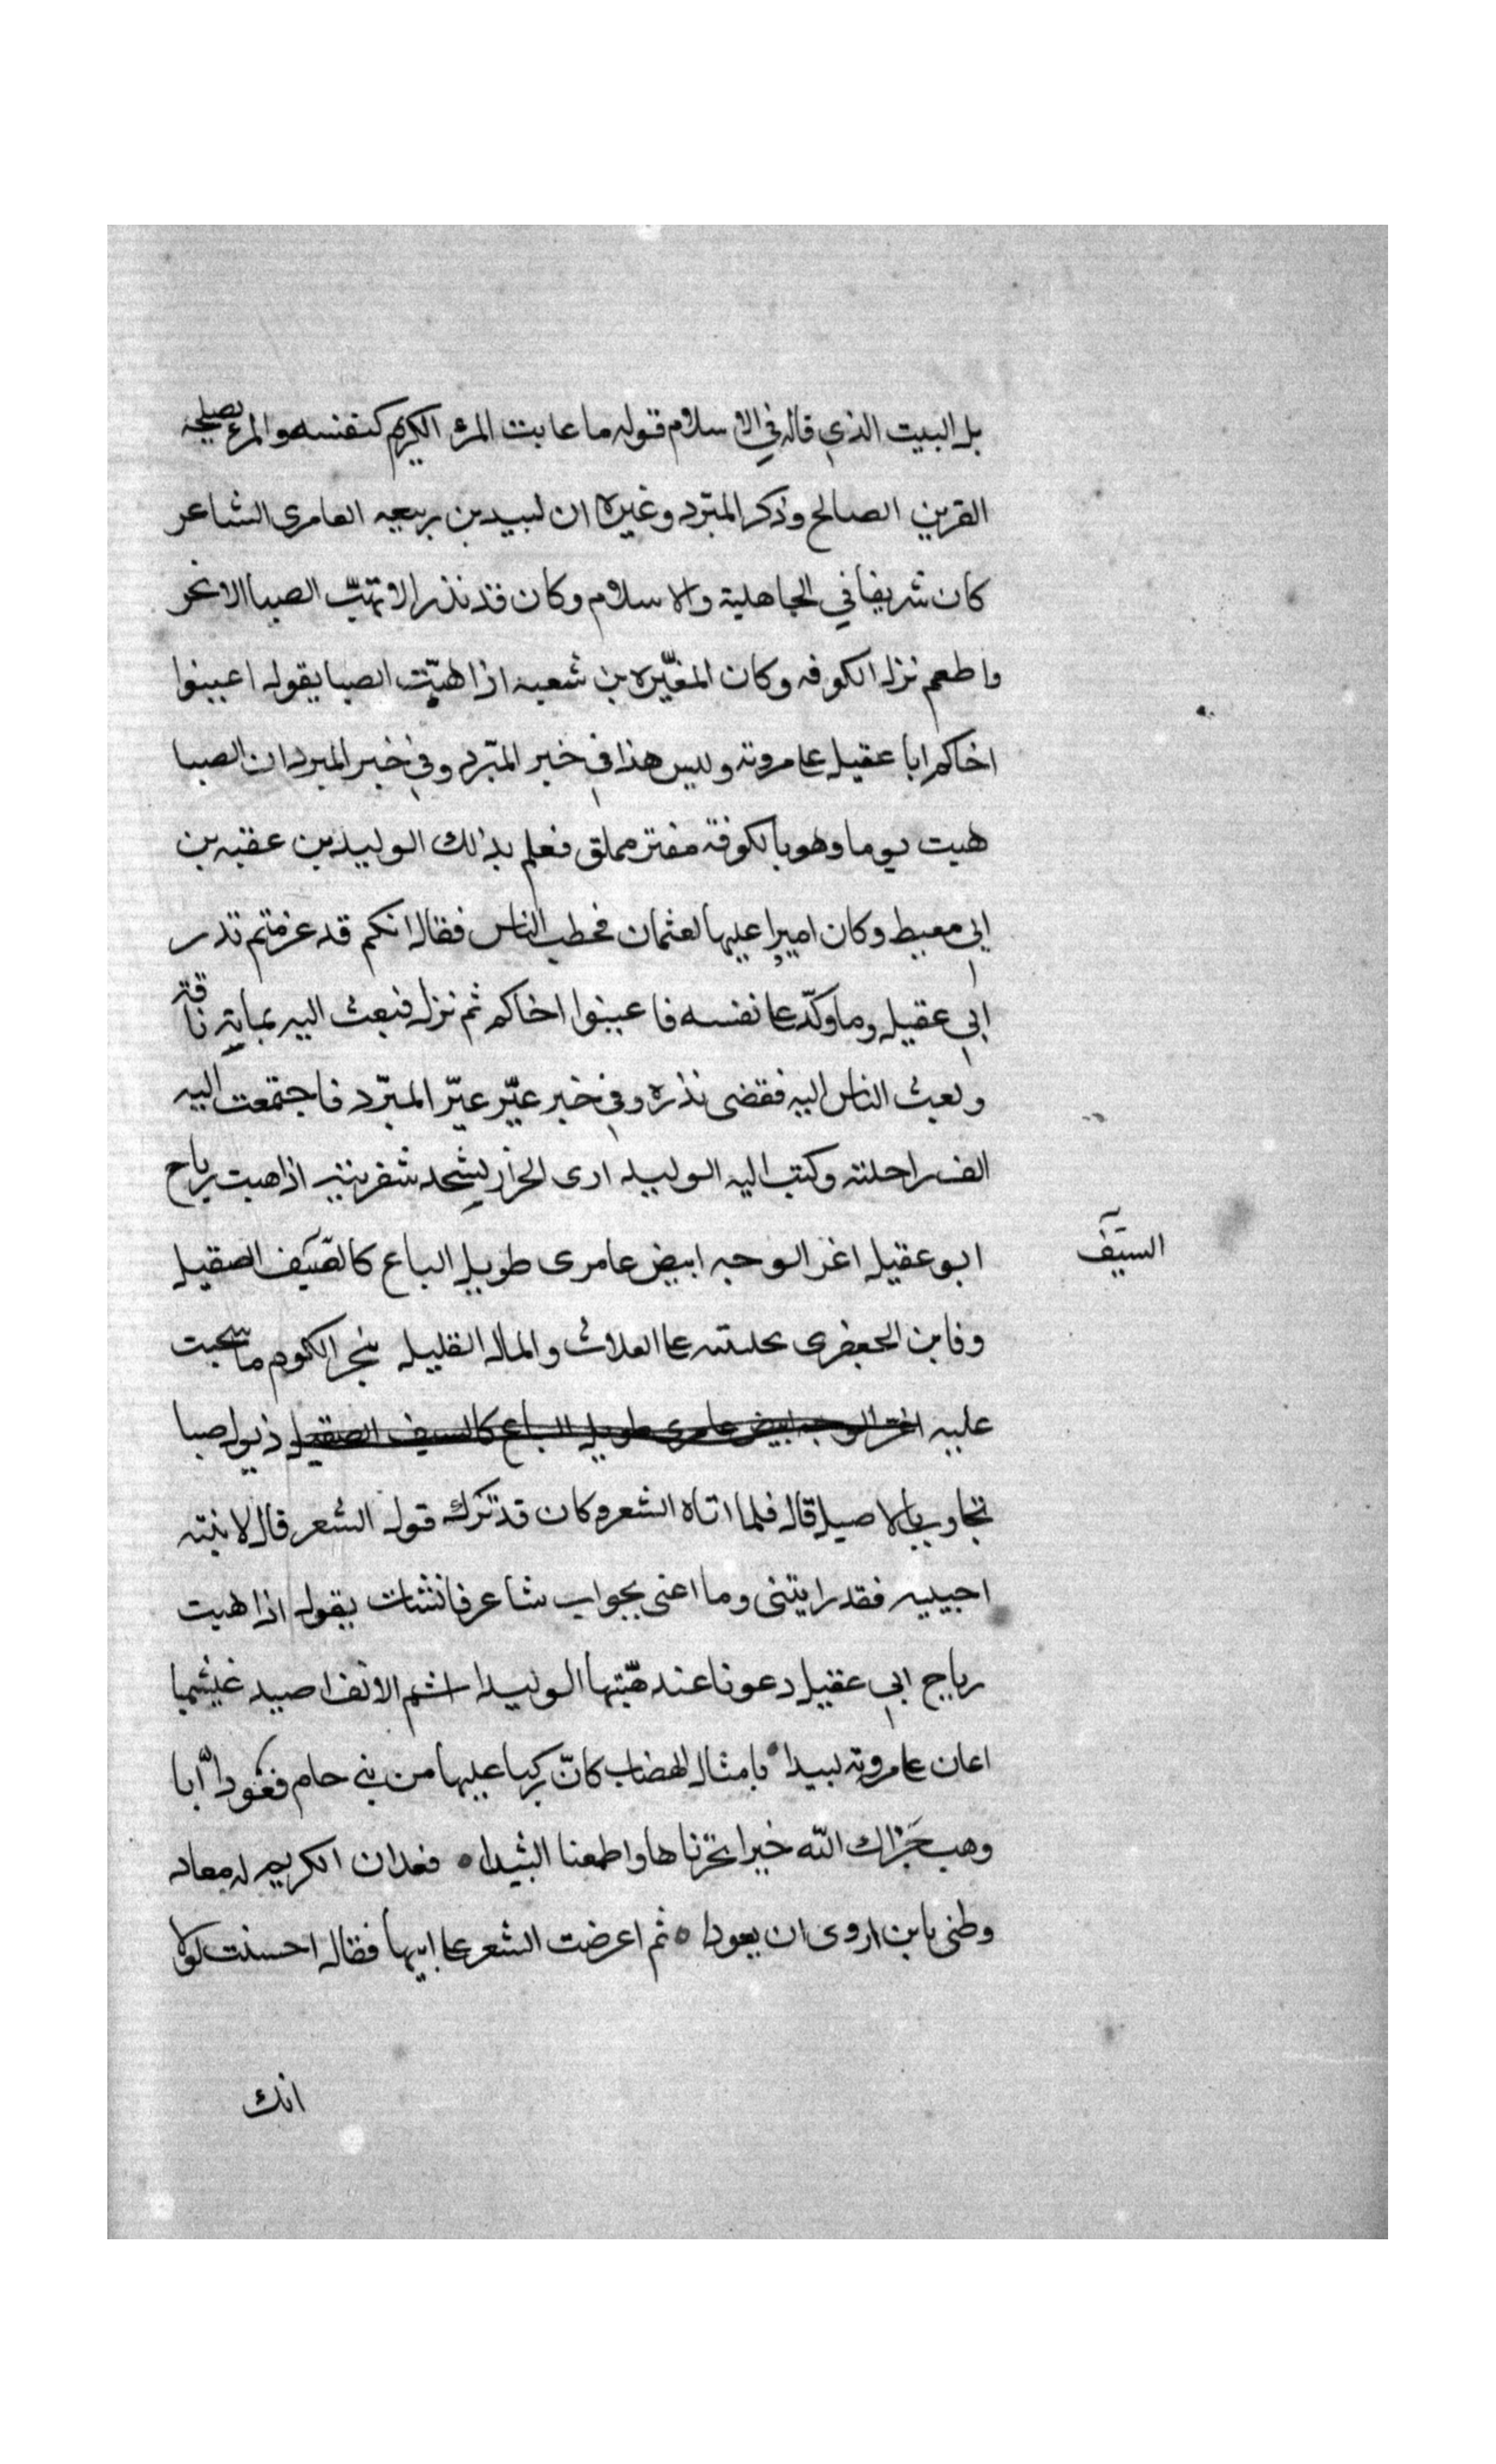 بل البيت الذي قاله في الاسلام قوله ما عابت المرء الكريم كنفسه والمرء يصلحه
القرين الصالح وذكر المبرّد وغيره ان لبيد بن ربيعه العامرى الشاعر
كان شريفا في الجاهلية والاسلام وكان قد نذر الا تهبّ الصبا الا نحر
واطعم نزل الكوفه وكان المغيّره بن شعبه اذا هبّت الصبا يقول اعينوا
اخاكم ابا عقيل على مروته وليس هذا في خبر المبّرد وفي خبر المبرد ان الصبا
هبت يوما وهو بالكوفة مقتر مملق فعلم بذلك الوليد بن عقبه بن
ابي معيط وكان اميرا عليها لعثمان فخطب الناس فقال انكم قد عرفتم نذر
ابي عقيل وما وكّد على نفسه فاعينوا اخاكم ثم نزل فبعث اليه بماية ناقة
وبعث الناس اليه فقضى نذره وفي خبر غيّر غيّر المبرّد فاجتمعت اليه
الف راحلته وكتب اليه الوليد ارى الجزار يشحد شفرتيه اذا هبت رياح
ابو عقيل اغر الوجه ابيض عامرى طويل الباع كالصّيف الصقيل
السيّف
وفا بن الجعفرى بحلسته على العلاث والمال القليل بنحر الكوم ما سحبت
عليه اغر الوجه ابيض عامرى طويل الباع كالسيف الصقيل ذيول صبا
تجاوب بالاصيل قال فلما اتاه الشعر وكان قد ترك قول الشعر قال لابنته
اجيبيه فقد رايتنى وما اعنى بجواب شاعر فانشات يقول اذا هبت
رياح ابي عقيل دعونا عند هبّتها الوليدا اشم الانف اصيد غبشميا
اعان على مروته لبيدا بامثال الهضاب كانّ ركبا عليها من بني حام قعودا أبا
وهب جَزاك اللّه خيرا نحرناها واطعمنا الثيدا فعد ان الكريم له معاد
وظنى بابن اروى ان يعودا ثم اعرضت الشعر على ابيها فقال احسنت لولا
انك